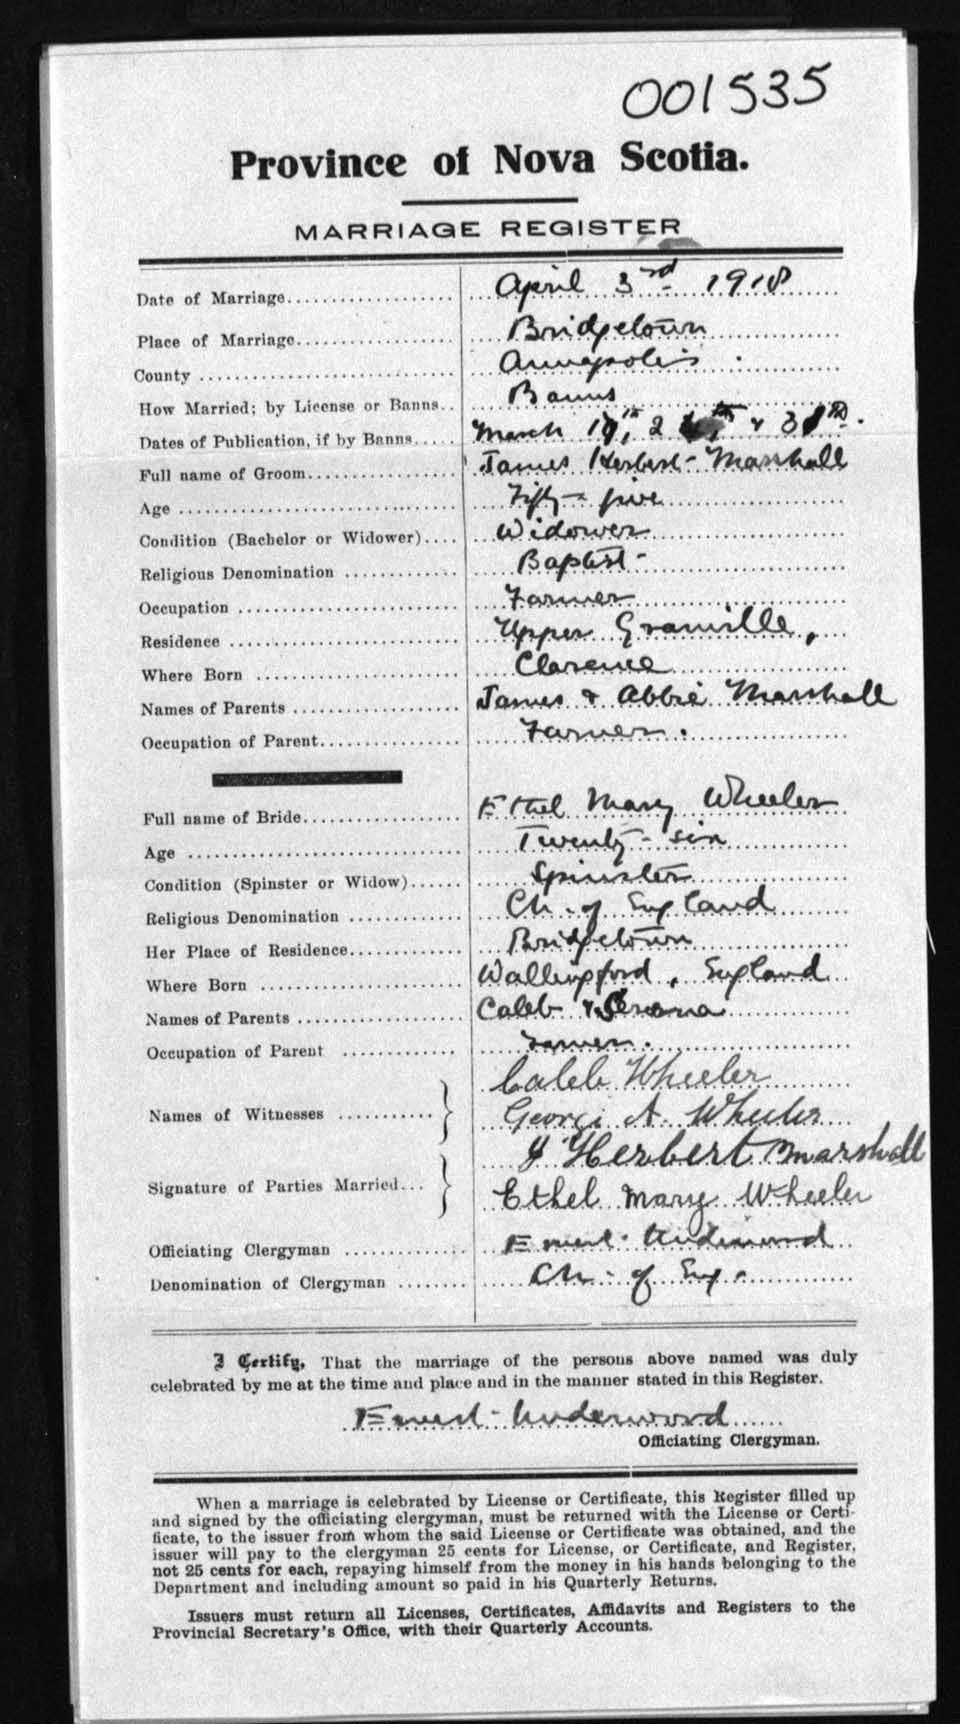 001535
Province of Nova Scotia.
MARRIAGE REGISTER
Date of Marriage April 3rd 1918
Place of Marriage Bridgetown
County Annapolis
How Married; by License or Banns Banns
Dates of Publication, if by Banns March 17th, 24th, & 31st.
Full name of Groom James Herbert Marshall
Age Fifty-five
Condition (Bachelor or Widower) Widower
Religious Denomination Baptist
Occupation Farmer
Residence Upper Granville,
Where Born Clarence
Names of Parents James & Abbie Marshall
Occupation of Parent Farmer.
Full name of Bride Ethel Mary Wheeler
Age Twenty-six
Condition (Spinster or Widow) Spinster
Religious Denomination Ch. of England
Her Place of Residence Bridgetown
Where Born Wallingford, England
Names of Parents Caleb &
Occupation of Parent Farmer.
Caleb Wheeler
Names of Witnesses George A. Wheeler
J Herbert Marshall
Signature of Parties Married Ethel Mary Wheeler
Officiating Clergyman Ernest Underwood
Denomination of Clergyman Ch. of Eng.
I Certify, That the marriage of the persons above named was duly
celebrated by me at the time and place and in the manner stated in this Register.
Ernest Underwood
Officiating Clergyman.
When a marriage is celebrated by License or Certificate, this Register filled up
and signed by the officiating clergyman, must be returned with the License or Certi-
ficate, to the issuer from whom the said License or Certificate was obtained, and the
issuer will pay to the clergyman 25 cents for License, or Certificate, and Register,
not 25 cents for each, repaying himself from the money in his hands belonging to the
Department and including amount so paid in his Quarterly Returns.
Issuers must return all Licenses, Certificates, Affidavits and Registers to the
Provincial Secretary's Office, with their Quarterly Accounts.